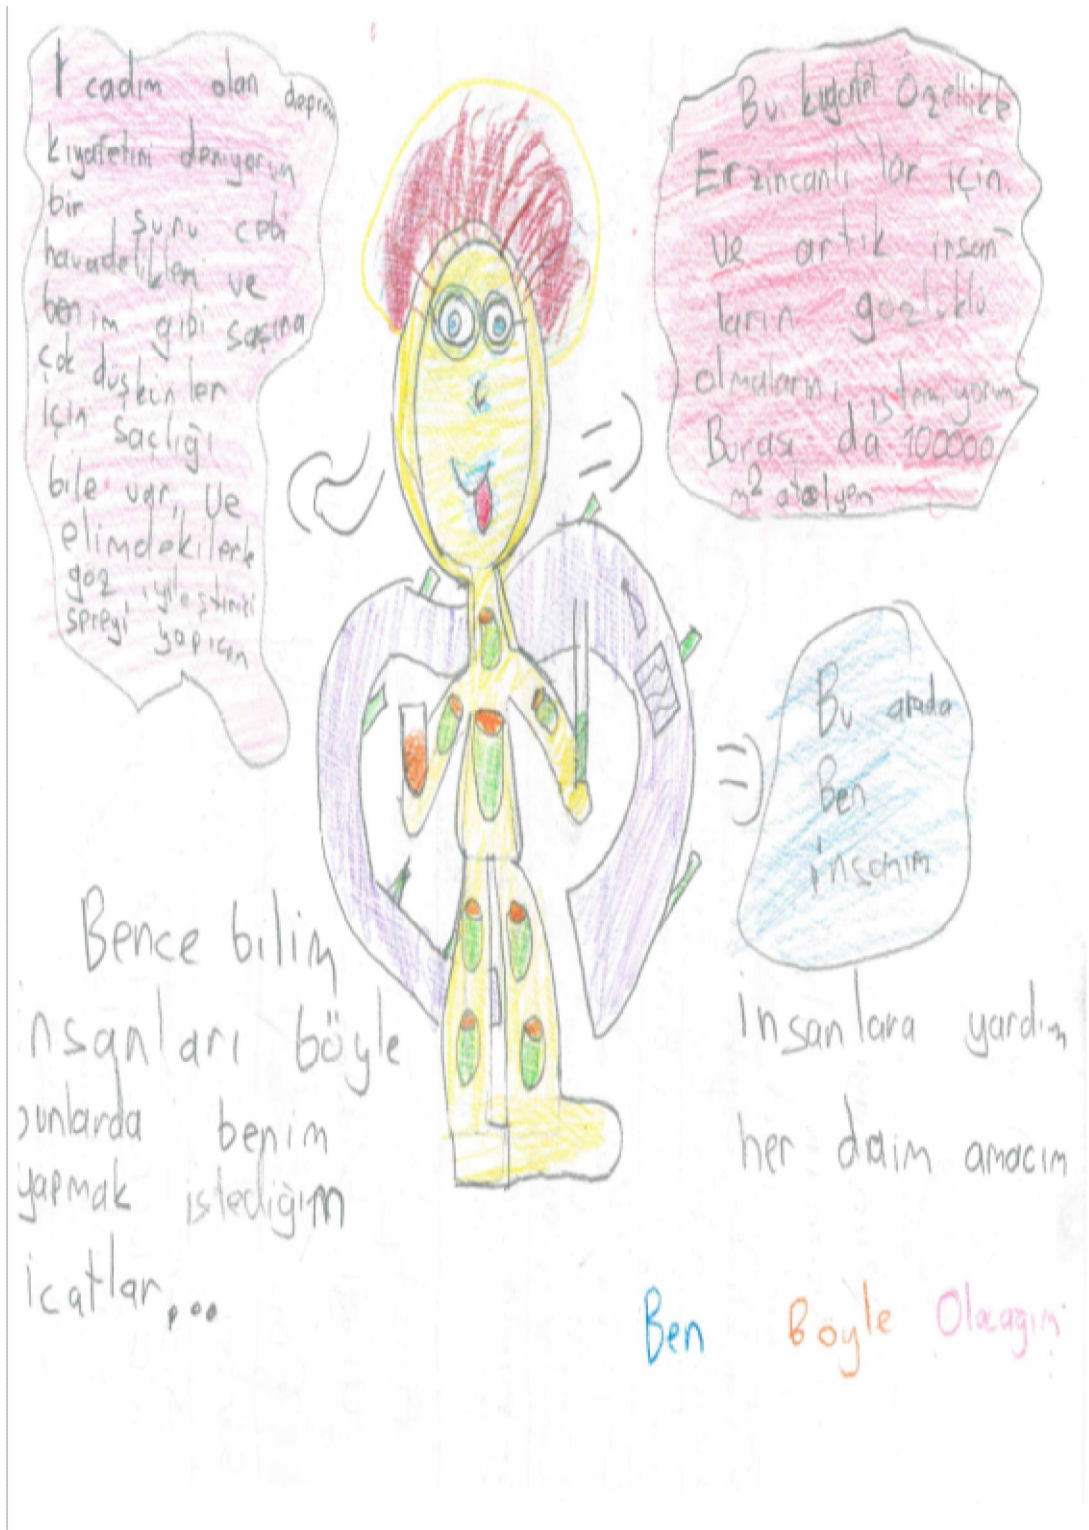 İcadım olan deprem
kıyafetini deniyorum
bir sürü cebi
havadelikleri ve
benim gibi saçına
çok düşkünler
için saçlığı
bile var,, Ve
elimdekilerle
göz iyileştirici
spreyi yapıcam
Bu kıyafet özellikle
Erzincanlı'lar için
ve artık insan
ların gözlüklü
olmalarını istemiyorum
Burası da 100000
m² atolyem
Bu arada
Ben
insanım
Bence bilim
insanları böyle
bunlarda benim
yapmak istediğim
icatlar...
insanlara yardım
her daim amacım
Ben Böyle Olacağım